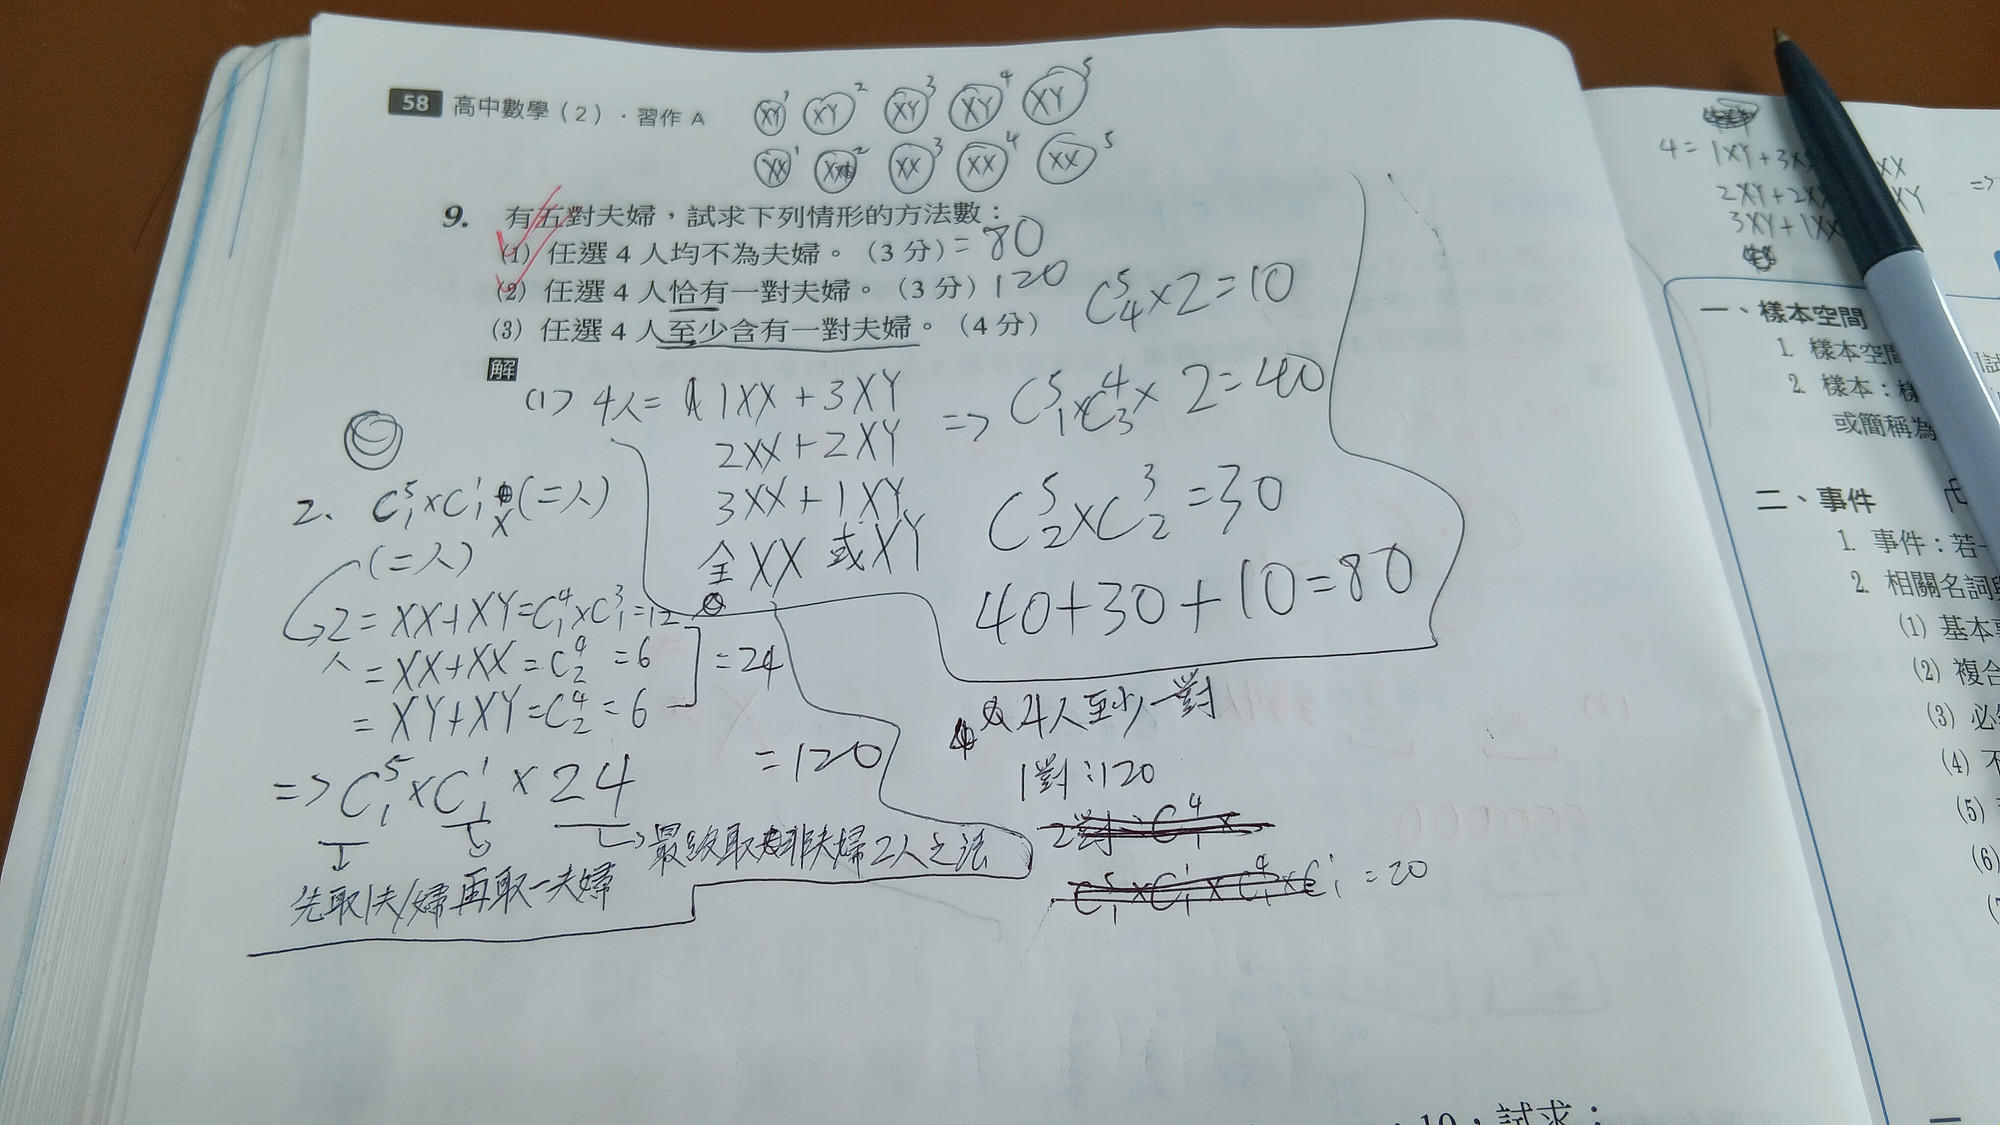 58 高中數學(2)．習作 A
XY 1 XY 2 XY 3 XY 4 XY 5
XX 1 XX 2 XX 3 XX 4 XX 5
9. 有五對夫婦，試求下列情形的方法數：
(1) 任選 4 人均不為夫婦。(3 分) = 80
(2) 任選 4 人恰有一對夫婦。(3 分) 120
(3) 任選 4 人至少含有一對夫婦。(4 分)
解
(1) 4人 = 1XX + 3XY
2XX + 2XY
3XX + 1XY
全 XX 或 XY
C⁵₄ × 2 = 10
=> C⁵₁ × C⁴₃ × 2 = 40
C⁵₂ × C³₂ = 30
40 + 30 + 10 = 80
2、 C⁵₁ × C¹₁ × (二人)
(二人)
2人 = XX + XY = C⁴₁ × C³₁ = 12
= XX + XX = C⁴₂ = 6
= XY + XY = C⁴₂ = 6
= 24
=> C⁵₁ × C¹₁ × 24 = 120
最終取非夫婦2人之法
先取1夫/婦 再取一夫婦
4人至少一對
1對：120
2對：C⁴₁ ×
C⁵₁ × C¹₁ × C⁴₁ × C¹₁ = 20
4 = 1XY + 3X
XX
2XY + 2X
XY
=>
3XY + 1XX
一、樣本空間
1. 樣本空間
2. 樣本：樣
或簡稱為
二、事件
1. 事件：若一
2. 相關名詞
(1) 基本
(2) 複合
(3) 必
(4) 不
(5)
(6)
10，試求：